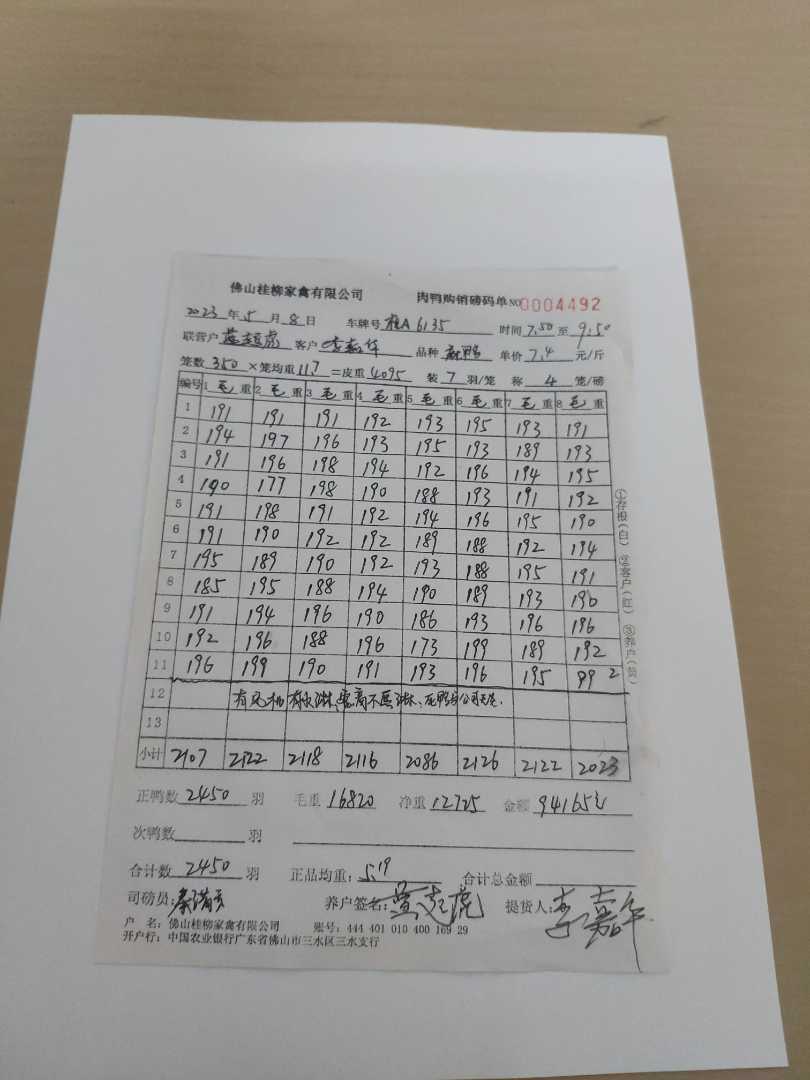 佛山桂柳家禽有限公司 肉鸭购销磅码单 NO 0004492
2023年5月8日 车牌号 桂A 6135 时间 7.50 至 9.50
联营户 客户 李嘉华 品种 麻鸭 单价 7.4 元/斤
笼数 350 ×笼均重 11.7 =皮重 4095 装 7 羽/笼 称 4 笼/磅
编号 1 毛重 2 毛重 3 毛重 4 毛重 5 毛重 6 毛重 7 毛重 8 毛重
1 191 191 191 192 193 195 193 191
2 194 197 196 193 195 193 189 193
3 191 196 198 194 192 196 194 195
4 190 177 198 190 188 193 191 192
5 191 198 191 192 194 196 195 190
6 191 190 192 192 189 188 192 194
7 195 189 190 192 193 188 195 191
8 185 195 188 194 190 189 193 196
9 191 194 196 190 186 193 196 196
10 192 196 188 196 173 199 189 192
11 196 199 190 191 193 196 195 99 2
12 有风机 有水淋, 客商不愿淋水, 死鸭与公司无关.
13
小计 2107 2122 2118 2116 2086 2126 2122 2023
正鸭数 2450 羽 毛重 16820 净重 12725 金额 94165元
次鸭数 羽
合计数 2450 羽 正品均重: 5.19 合计总金额
司磅员: 养户签名: 提货人: 李嘉华
户 名: 佛山桂柳家禽有限公司 账号: 444 401 010 400 169 29
开户行: 中国农业银行广东省佛山市三水区三水支行
①存根(白) ②客户(红) ③养户(黄)